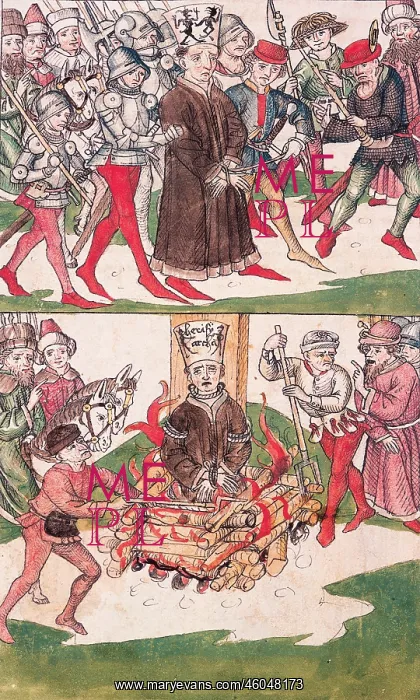 M E
P L
archa
M E
P L
www.maryevans.com/46048173